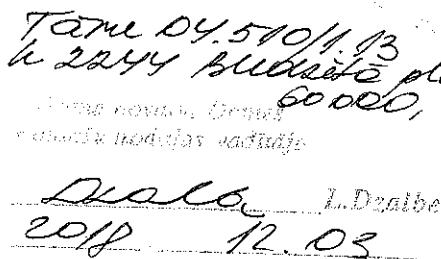 Tāme 04.510/1.13
k 2244 Budžetā pl
60 000,
novada Domes
nodaļas vadītāje
L.Dzalbe
2018 12.03